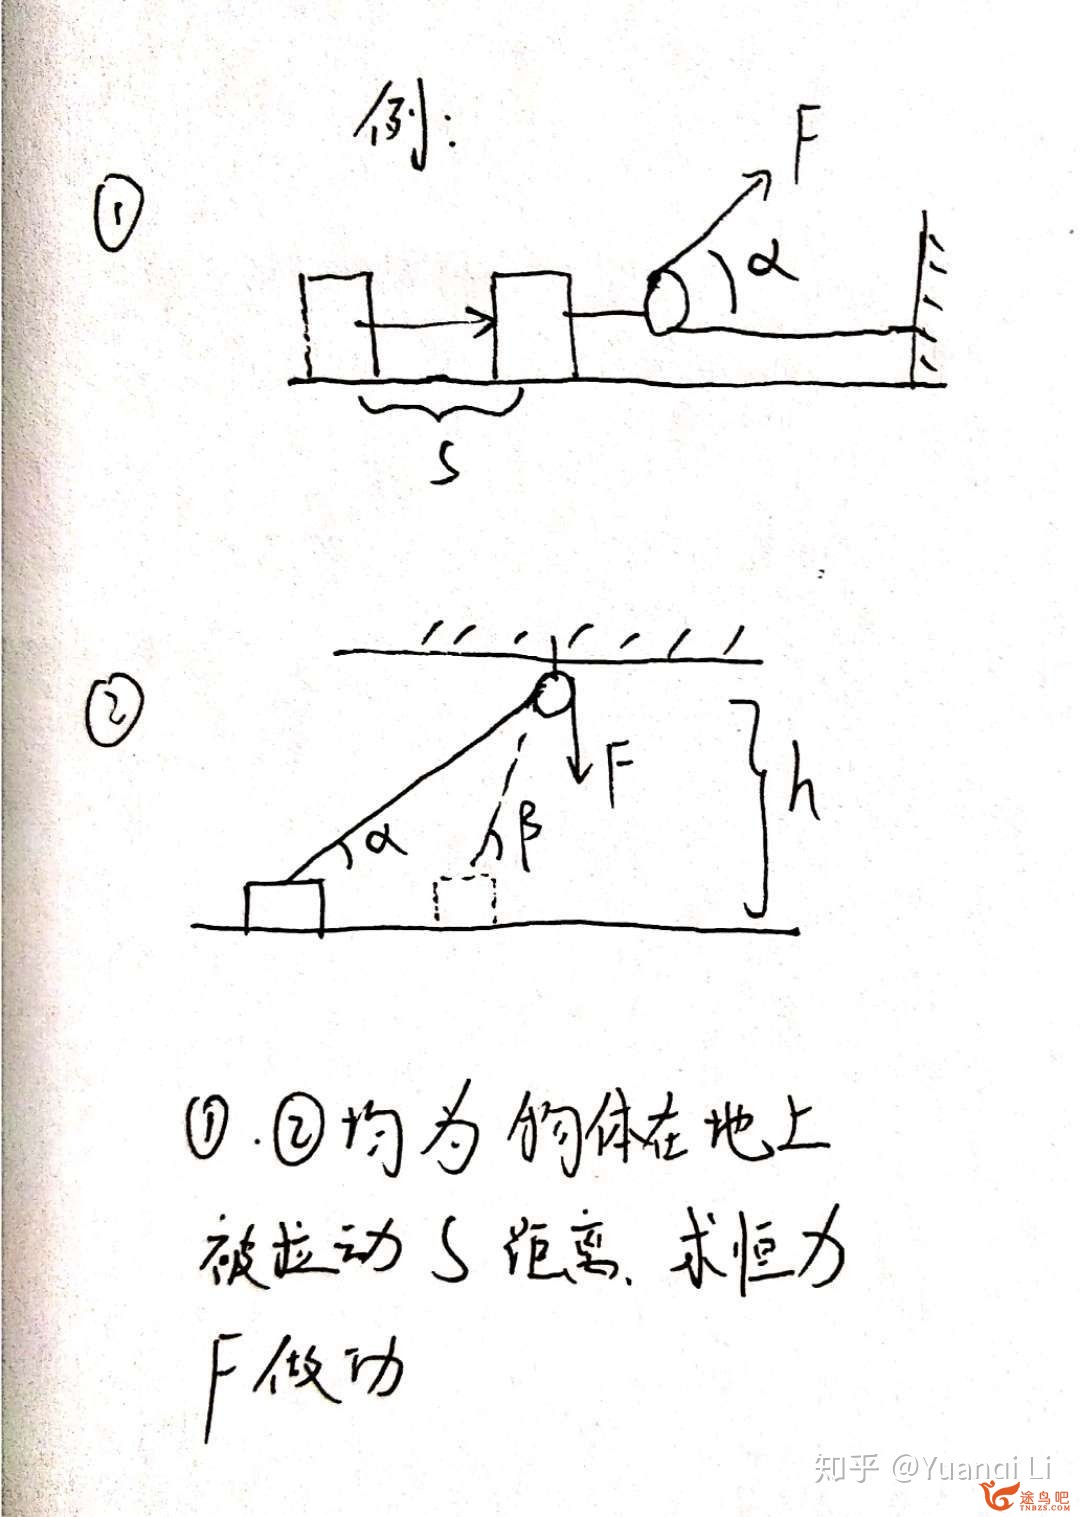 例:
①
F
α
S
②
F
h
α
β
①.②均为物体在地上
被拉动S距离、求恒力
F做功
知乎 @Yuanqi Li
途鸟吧
TNBZS.COM